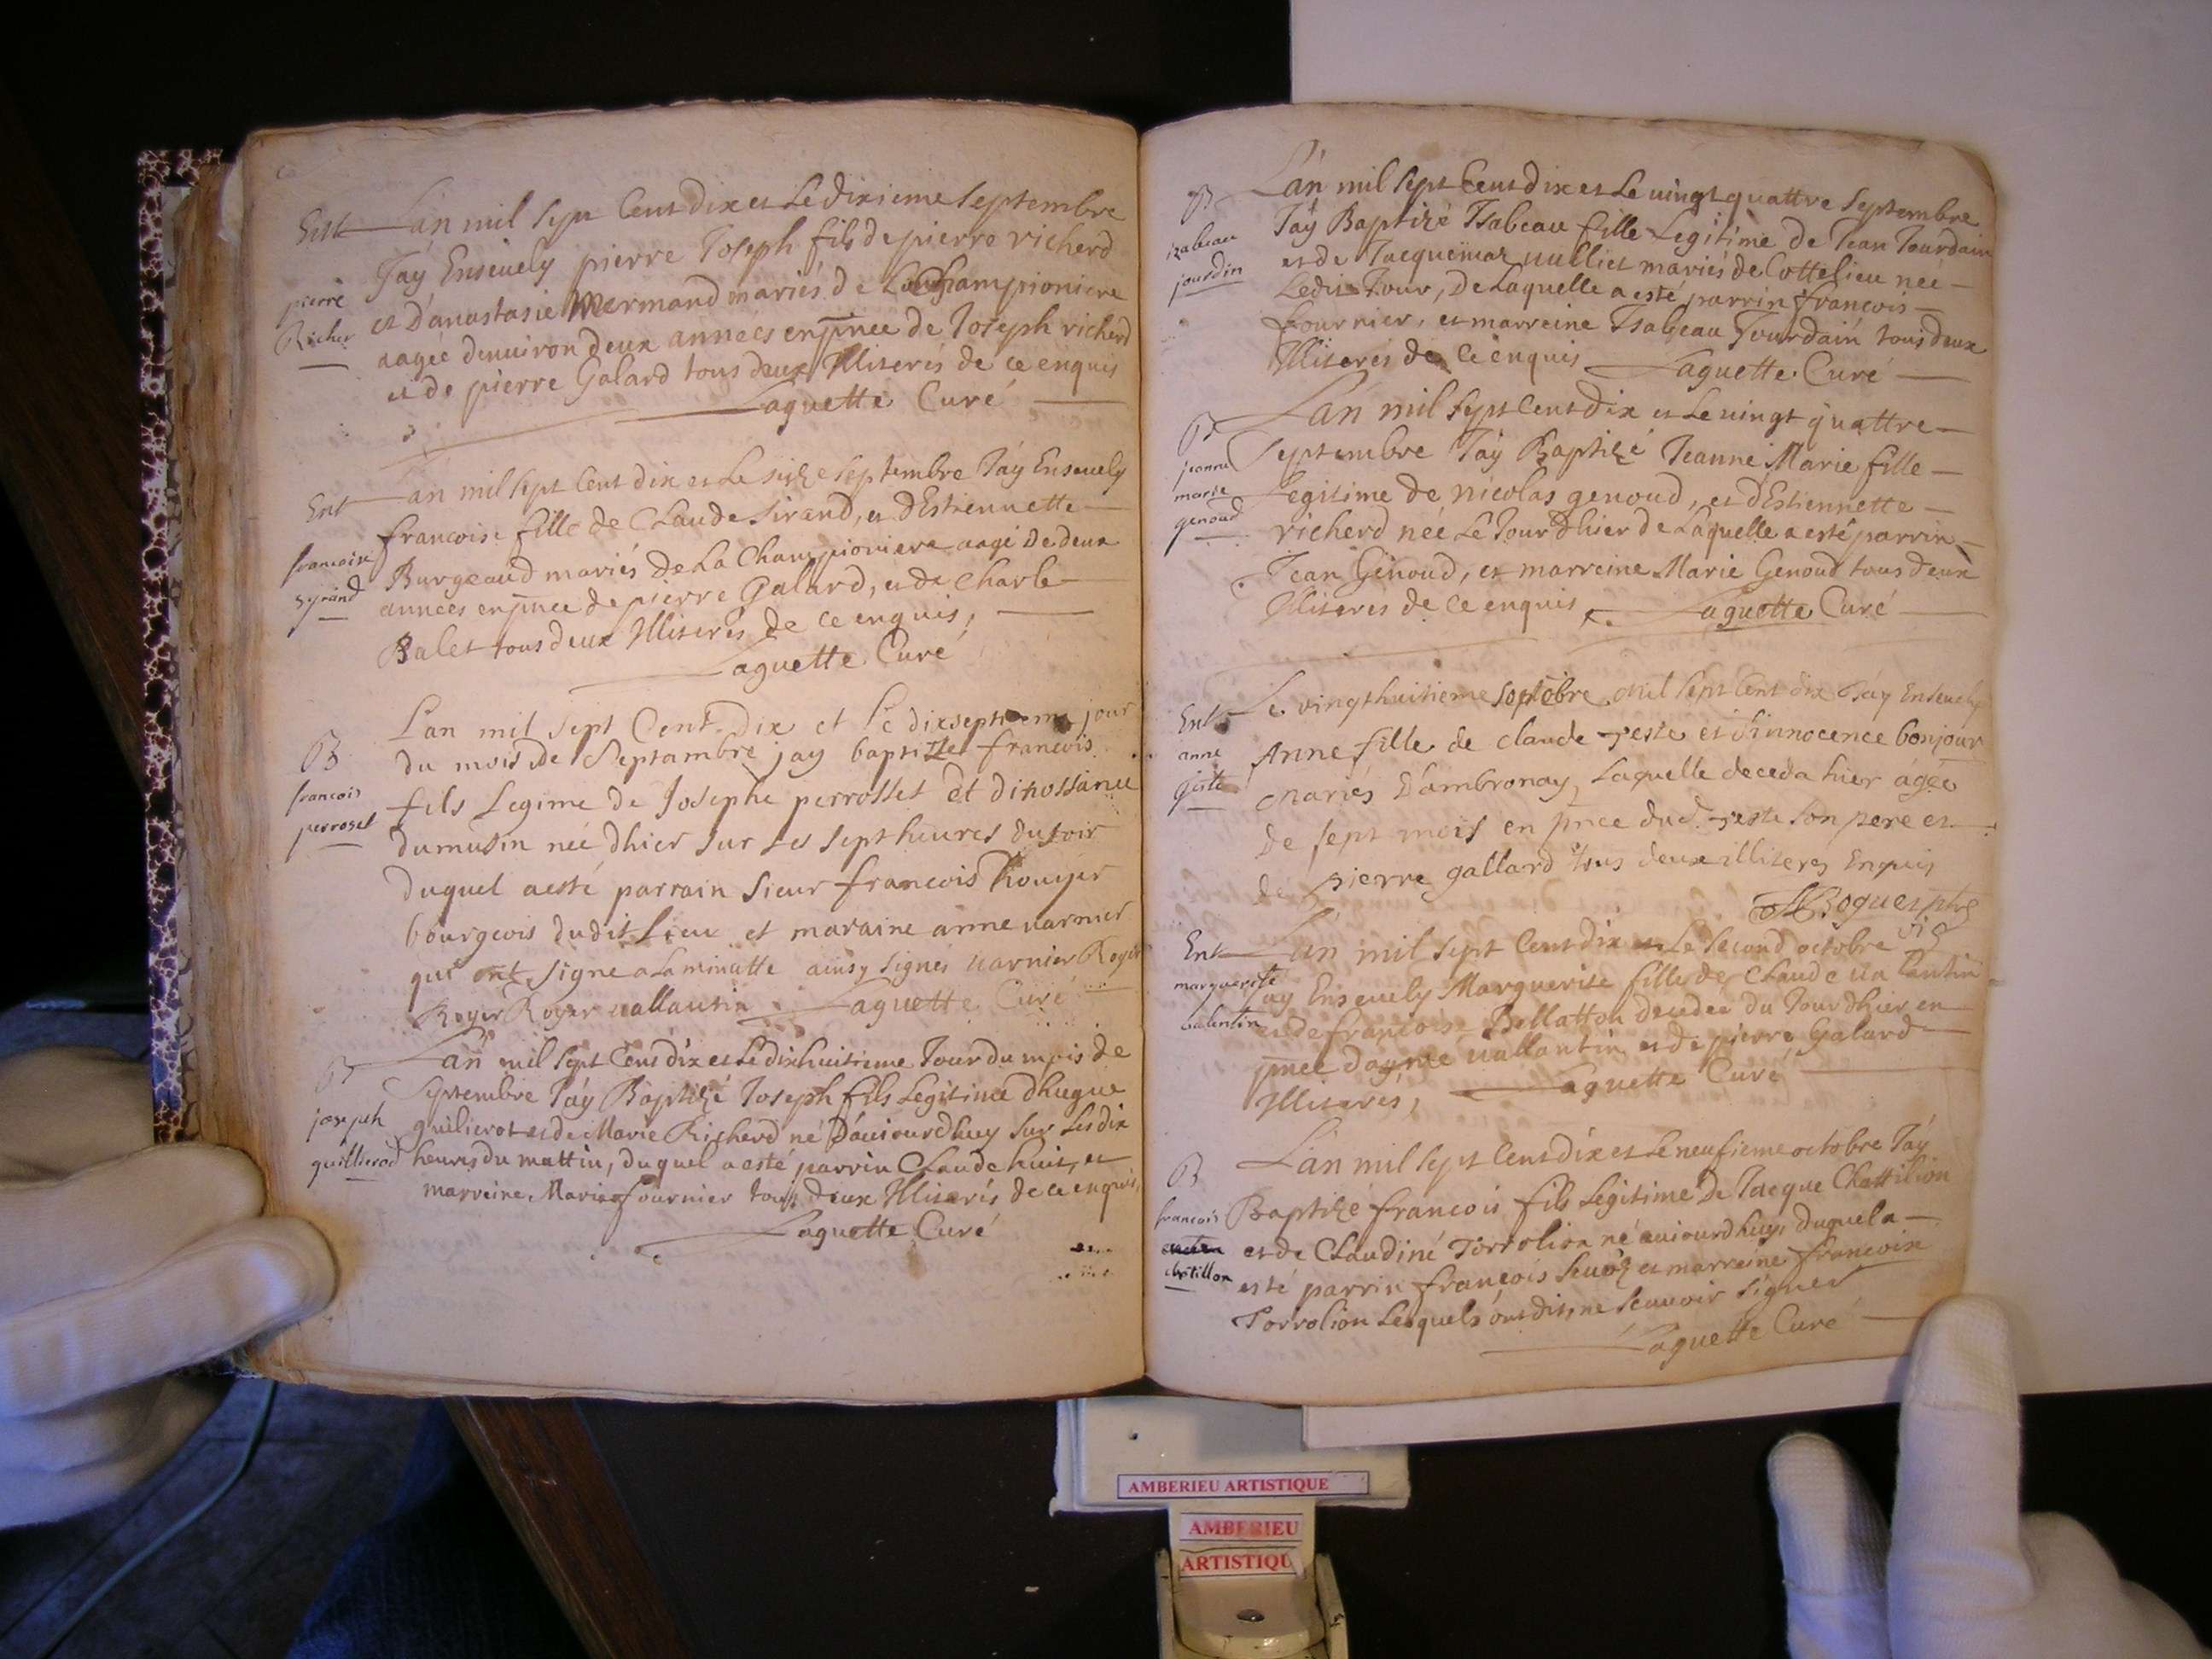 Ent
pierre
Richer
Lan mil sept Cent dix et Le dixieme septembre
Jáy Enseuely pierre Joseph fils de pierre richerd
et D'anastasie Mermand mariés de La Championiere
aagée denuiron deux années en pnce de Joseph richerd
et de pierre Galard tous deux Illiterés de ce enquis
Laguette Curé
Ent
francoise
syrand
Lan mil sept Cent dix et Le sieze septembre Jáy Enseuely
francoise fille de Claude Sirand, et dEstiennette
Burgeaud mariés de La Championiere aagé de deux
années en pnce de pierre Galard, et de Charle
Balet tous deux Illiterés de ce enquis,
Laguette Curé
B
francois
perroset
Lan mil sept Cent dix et Le dixseptieme jour
du mois de Septambre jay baptizze francois
fils Legime de Josephe perrosset et dinossance
dumusin née dhier sur Les sept heures du soir
duquel aesté parrain Sieur francois Rouyer
bourgeois dudit Lieu et maraine anne uarnier
qui ont signe a La minutte ainsy signés uarnier Royer
Royer Royer uallantin Laguette Curé
B
joseph
guillierod
Lan mil sept Cent dix et Le dixhuitieme Jour du mois de
Septembre Jáy Baptizé Joseph fils Legitime dhugue
guilierot et de Marie Richerd né D'auiourdhuy sur Les dix
heures du mattin, duquel a esté parrin Claude huit, et
marreine Marie fournier tous deux Illiterés de ce enquis,
Laguette Curé
B
izabeau
jourdin
Lán mil sept Cent dix et Le uingt quattre Septembre
Jáy Baptizé Isabeau fille Legitime de Jean Jourdain
et de Jacquemaz uulliet mariés de Cottelieu née
Ledit Jour, De Laquelle a esté parrin francois
fournier, et marreine Isabeau Jourdain tous deux
Illiterés de ce enquis Laguette Curé
B
jeanne
marie
genoud
Lán mil sept Cent dix et Le uingt quattre
Septembre Jáy Baptizé Jeanne Marie fille
Legitime de nicolas genoud, et dEstiennette
richerd née Le Jour dhier de Laquelle a esté parrin
Jean Genoud, et marreine Marie Genoud tous deux
Illiterés de ce enquis Laguette Curé
Ent
anne
geste
Le vingthuitieme septebre mil sept Cent dix Jáy Enseuely
Anne fille de claude jeste et dinnocence bonjour
mariés D'ambronay, Laquelle deceda hier ágée
de sept mois en pnce dud. jeste son pere et
de pierre gallard tous deux illiteres Enquis
Boguet ptre
vic
Ent
marguerite
balentin
Lán mil sept Cent dix et Le Second octobre
Jáy Enseuely Marguerite fille de Claude uallantin
et de francoise Bellatton decedée du Jour dhier en
pnce dayme uallantin et de pierre Galard
Illiterés, Laguette Curé
B
francois
chatillon
Lán mil sept Cent dix et Le neufieme octobre Jáy
Baptizé francois fils Legitime de Jacque Chattilion
et de Claudine Torrolion né auiourdhuy, duquel a
esté parrin françois et marreine francoise
Torrolion Lesquels ont dit ne scauoir signer
Laguette Curé
AMBERIEU ARTISTIQUE
AMBERIEU
ARTISTIQU